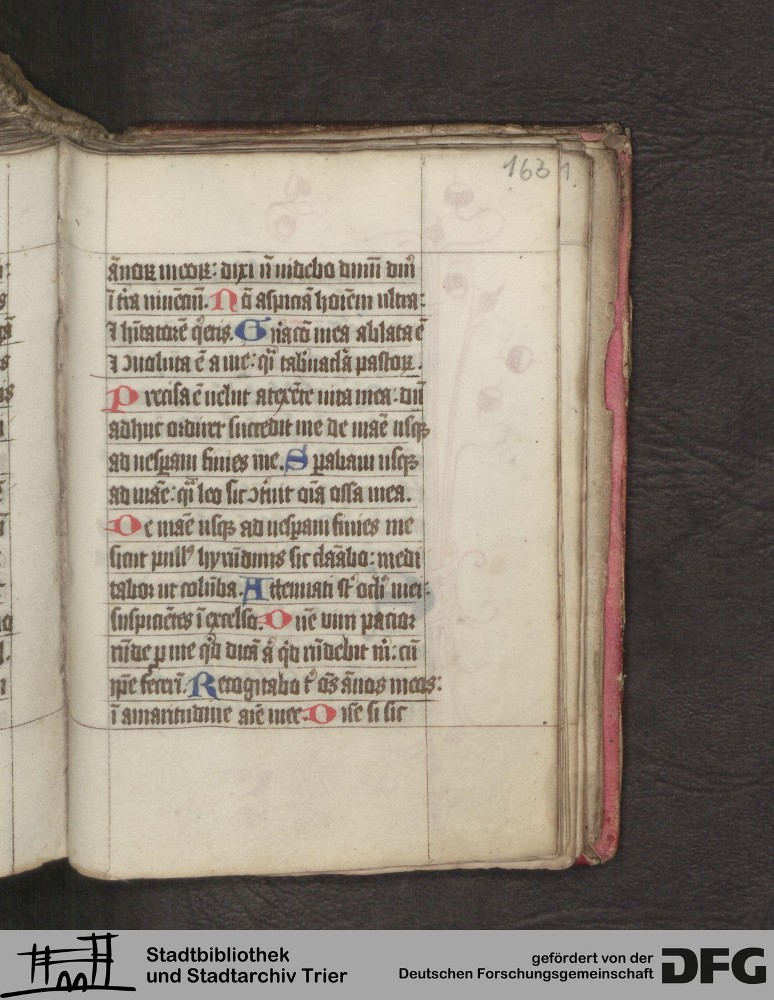 163 1
ānoꝝ meoꝝ: dixi ñ uidebo dñm dm̄
ī t̄ra uiuēciū. Nō aspiciā hoīem ultra:
⁊ hītatorē q̄etis. Gn̄acō mea ablata ē
⁊ ꝯuoluta ē a me: qͣi tab̄nacl̄a pastoꝝ.
Precisa ē uelut a texēte uita mea: dū
adhuc ordirer succidit me de maē usqꝫ
ad uesꝑam finies me. Sꝑabam usqꝫ
ad māe: qͣi leo sic ꝯt̄uit oīa ossa mea.
De maē usqꝫ ad uesꝑam finies me
sicut pullꝰ hyrūdinis sic clāabo: medi
tabor ut colūba. Attenuati st̄ ocl̓i mei:
suspiciētes ī excelso. Dn̄e uim pacior
rn̄de ꝓ me qͥd dicā aͭ qͥd rn̄debit m̄i: cū
ip̄e fec̄ri. Recogitabo t̄ ōs ānos meos:
ī amaritudine aīe mee. Dn̄e si sic
Stadtbibliothek
und Stadtarchiv Trier
gefördert von der
Deutschen Forschungsgemeinschaft
DFG